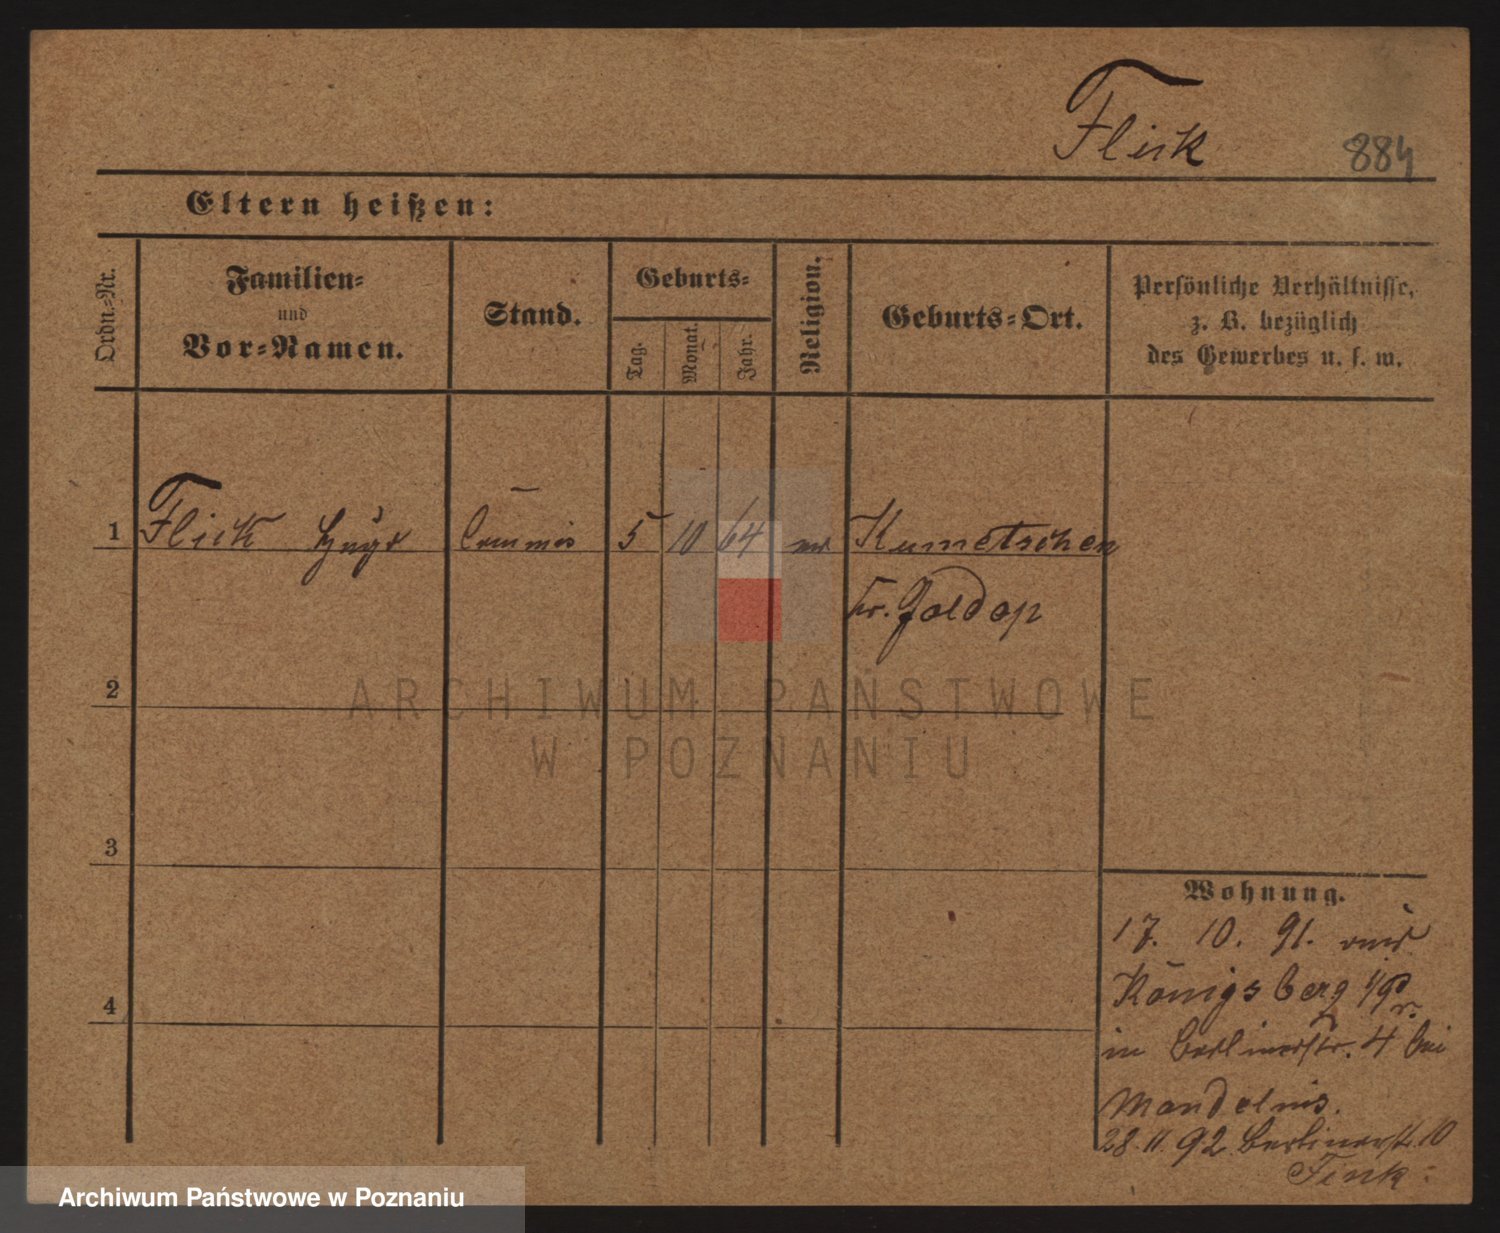 Flick
884
Eltern heißen:
Ordn.-Nr.
Familien-
und
Vor-Namen.
Stand.
Geburts-
Tag.
Monat.
Jahr.
Religion.
Geburts-Ort.
Persönliche Verhältnisse,
z. B. bezüglich
des Gewerbes u. s. w.
1 Flick Commis 5 10 64 Kumetschen
Kr. Goldap
2
ARCHIWUM PAŃSTWOWE
W POZNANIU
3
Wohnung.
17. 10. 91. aus
Königsberg i/Pr.
4
in Berlinerstr. 4 bei
Mandelnis.
28. 11. 92. Berlinerstr. 10
Fink.
Archiwum Państwowe w Poznaniu